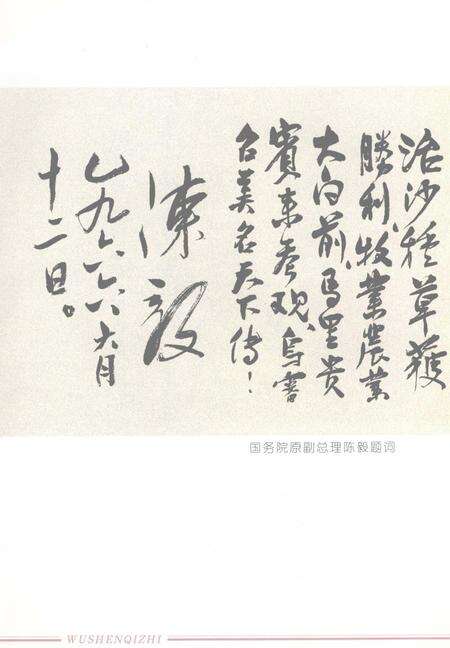 治沙種草獲
勝利、牧業農業
大向前、馬里貴
賓来参观、烏審
召美名天下傳!
陳毅
一九六六六月
十二日。
国务院原副总理陈毅题词
WUSHENQIZHI